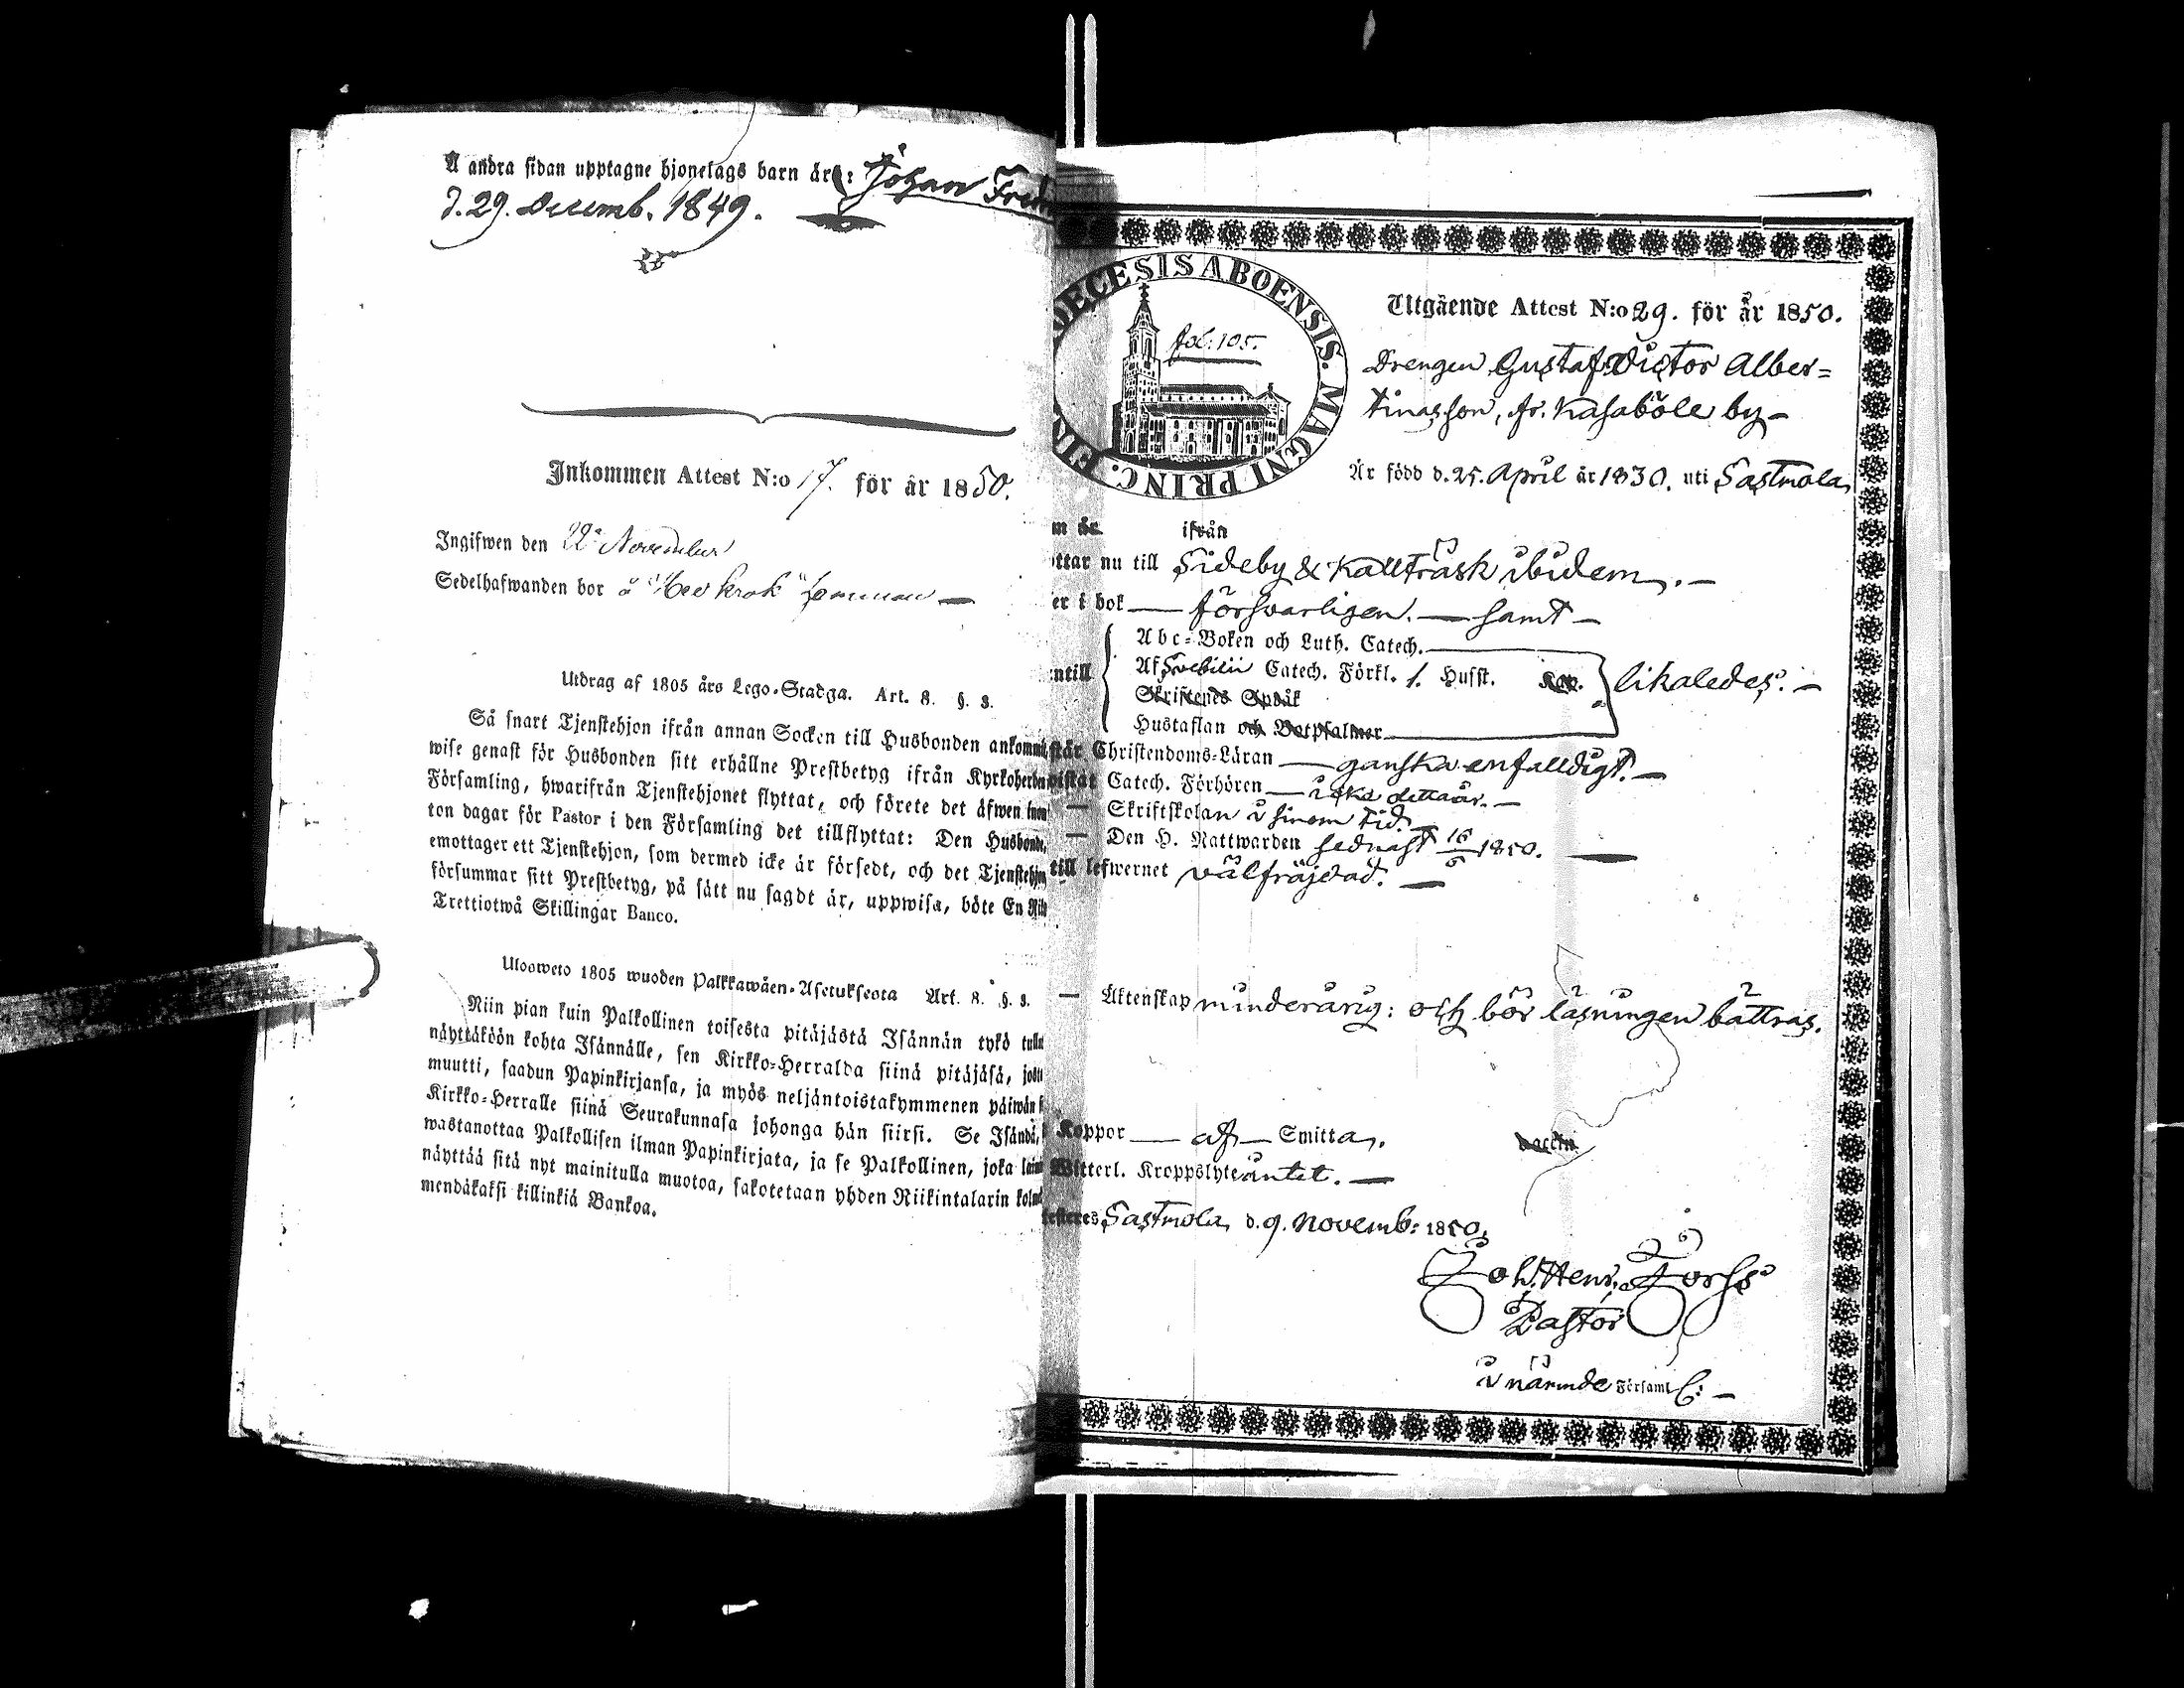 Å andra sidan upptagne hjonelags barn är: Johan Fredr
d. 29. Decemb. 1849.
Inkommen Attest N:o 17. för år 1850.
Ingifwen den 22 November
Sedelhafwanden bor å
Utdrag af 1805 års Lego-Stadga. Art. 8. §. 3.
Så snart Tjenstehjon ifrån annan Socken till Husbonden ankommi
wise genast för Husbonden sitt erhållne Prestbetyg ifrån Kyrkoherden
Församling, hwarifrån Tjenstehjonet flyttat, och förete det äfwen inom
ton dagar för Pastor i den Församling det tillflyttat: Den Husbonde,
emottager ett Tjenstehjon, som dermed icke är försedt, och det Tjenstehjon
försummar sitt Prestbetyg, på sätt nu sagdt är, uppwisa, böte En Rik
Trettiotwå Skillingar Banco.
Ulosweto 1805 wuoden Palkkawäen-Asetuksesta Art. 8. §. 3.
Niin pian kuin Palkollinen toisesta pitäjästä Isännän tykö tulla
näyttäköön kohta Isännälle, sen Kirkko-Herralda siinä pitäjäsä, josta
muutti, saadun Papinkirjansa, ja myös neljäntoistakymmenen päiwän s
Kirkko-Herralle siinä Seurakunnasa johonga hän siirsi. Se Isändä,
wastanottaa Palkollisen ilman Papinkirjata, ja se Palkollinen, joka laim
näyttää sitä nyt mainitulla muotoa, sakotetaan yhden Riikintalarin kolm
mendäkaksi killinkiä Bankoa.
DECESIS ABOENSIS. MAGNI PRINC. FIN
fol: 105.
Utgående Attest N:o 29. för år 1850.
Drengen Gustaf Victor Alber=
tinasson, fr. Kasaböle by –
Är född d. 25. April år 1830. uti Sastmola,
m är ifrån
ttar nu till Sideby & Kallträsk ibidem. –
er i bok — försvarligen. — samt –
Abc-Boken och Luth. Catech.
ntill Af Svebilii Catech. Förkl. /. Husst. Kap. likaledes. –
Skriftenes Språk
Hustaflan och Botpsalmer
står Christendoms-Läran — ganska enfalldigt. –
wistat Catech. Förhören — icke detta år. –
— Skriftskolan i sinom tid. –
— Den H. Nattwarden sednast 16/6 1850. —
till lefwernet välfräjdad. —
— Äktenskap minderårig: och bör läsningen bättras.
Koppor — af — Smitta. vaccin
Witterl. Kroppslyte intet. —
testeres Sastmola, d. 9. Novemb: 1850.
Joh. Henr. Forss
Pastor
i närnde Församl: